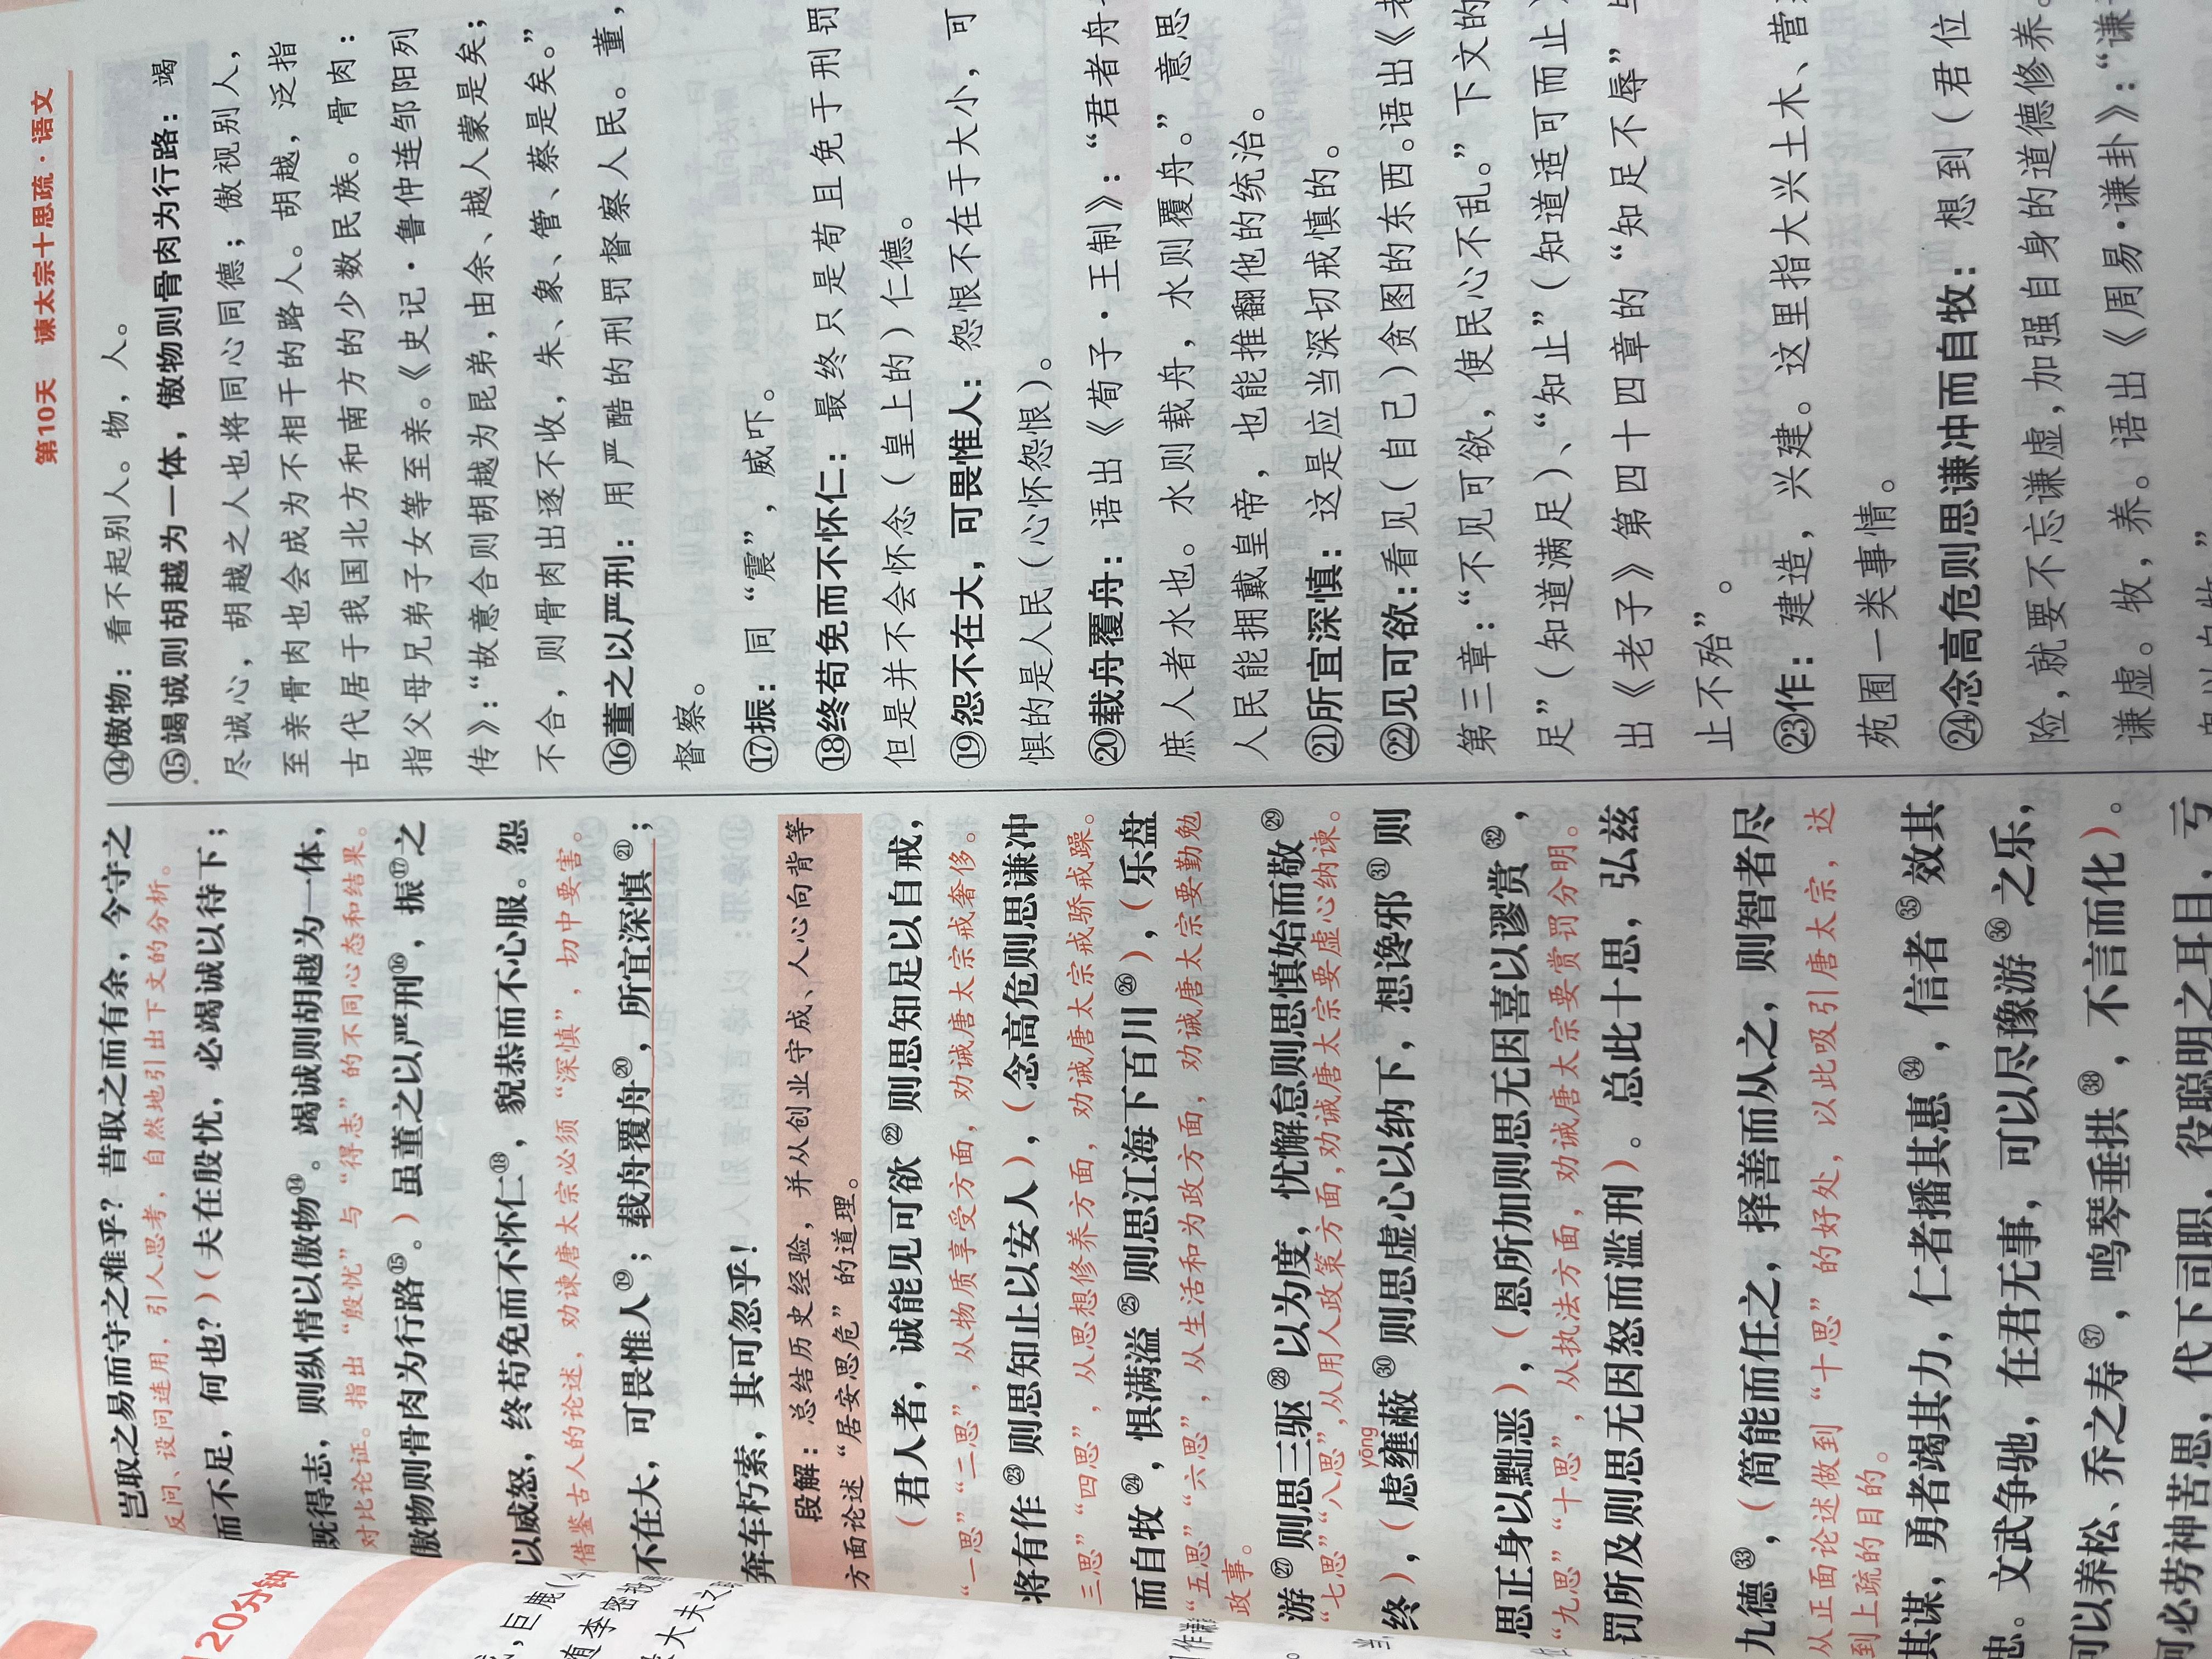 第10天 谏太宗十思疏·语文
岂取之易而守之难乎？昔取之而有余，今守之
反问、设问连用，引人思考，自然地引出下文的分析。
而不足，何也？）（夫在殷忧，必竭诚以待下；
既得志，则纵情以傲物⑭。竭诚则胡越为一体，
对比论证。指出“殷忧”与“得志”的不同心态和结果。
傲物则骨肉为行路⑮。）虽董之以严刑⑯，振⑰之
以威怒，终苟免而不怀仁⑱，貌恭而不心服。怨
借鉴古人的论述，劝谏唐太宗必须“深慎”，切中要害。
不在大，可畏惟人⑲；载舟覆舟⑳，所宜深慎㉑；
奔车朽索，其可忽乎！
段解：总结历史经验，并从创业守成、人心向背等
方面论述“居安思危”的道理。
（君人者，诚能见可欲㉒则思知足以自戒，
“一思”“二思”，从物质享受方面，劝诫唐太宗戒奢侈。
将有作㉓则思知止以安人），（念高危则思谦冲
三思”“四思”，从思想修养方面，劝诫唐太宗戒骄戒躁。
而自牧㉔，惧满溢㉕则思江海下百川㉖），（乐盘
“五思”“六思”，从生活和为政方面，劝诫唐太宗要勤勉
政事。
游㉗则思三驱㉘以为度，忧懈怠则思慎始而敬㉙
“七思”“八思”，从用人政策方面，劝诫唐太宗要虚心纳谏。
yōng
终），（虑壅蔽㉚则思虚心以纳下，想谗邪㉛则
思正身以黜恶），（恩所加则思无因喜以谬赏㉜，
“九思”“十思”，从执法方面，劝诫唐太宗要赏罚分明。
罚所及则思无因怒而滥刑）。总此十思，弘兹
九德㉝，（简能而任之，择善而从之，则智者尽
从正面论述做到“十思”的好处，以此吸引唐太宗，达
到上疏的目的。
其谋，勇者竭其力，仁者播其惠㉞，信者㉟效其
忠。文武争驰，在君无事，可以尽豫游㊱之乐，
可以养松、乔之寿㊲，鸣琴垂拱㊳，不言而化）。
何必劳神苦思，代下司职，役聪明之耳目，亏
⑭傲物：看不起别人。物，人。
⑮竭诚则胡越为一体，傲物则骨肉为行路：竭
尽诚心，胡越之人也将同心同德；傲视别人，
至亲骨肉也会成为不相干的路人。胡越，泛指
古代居于我国北方和南方的少数民族。骨肉：
指父母兄弟子女等至亲。《史记·鲁仲连邹阳列
传》：“故意合则胡越为昆弟，由余、越人蒙是矣；
不合，则骨肉出逐不收，朱、象、管、蔡是矣。”
⑯董之以严刑：用严酷的刑罚督察人民。董，
督察。
⑰振：同“震”，威吓。
⑱终苟免而不怀仁：最终只是苟且免于刑罚
但是并不会怀念（皇上的）仁德。
⑲怨不在大，可畏惟人：怨恨不在于大小，可
惧的是人民（心怀怨恨）。
⑳载舟覆舟：语出《荀子·王制》：“君者舟
庶人者水也。水则载舟，水则覆舟。”意思
人民能拥戴皇帝，也能推翻他的统治。
㉑所宜深慎：这是应当深切戒慎的。
㉒见可欲：看见（自己）贪图的东西。语出《老
第三章：“不见可欲，使民心不乱。”下文的
足”（知道满足）、“知止”（知道适可而止）
出《老子》第四十四章的“知足不辱”与
止不殆”。
㉓作：建造，兴建。这里指大兴土木、营
苑囿一类事情。
㉔念高危则思谦冲而自牧：想到（君位
险，就要不忘谦虚，加强自身的道德修养。
谦虚。牧，养。语出《周易·谦卦》：“谦
20分钟